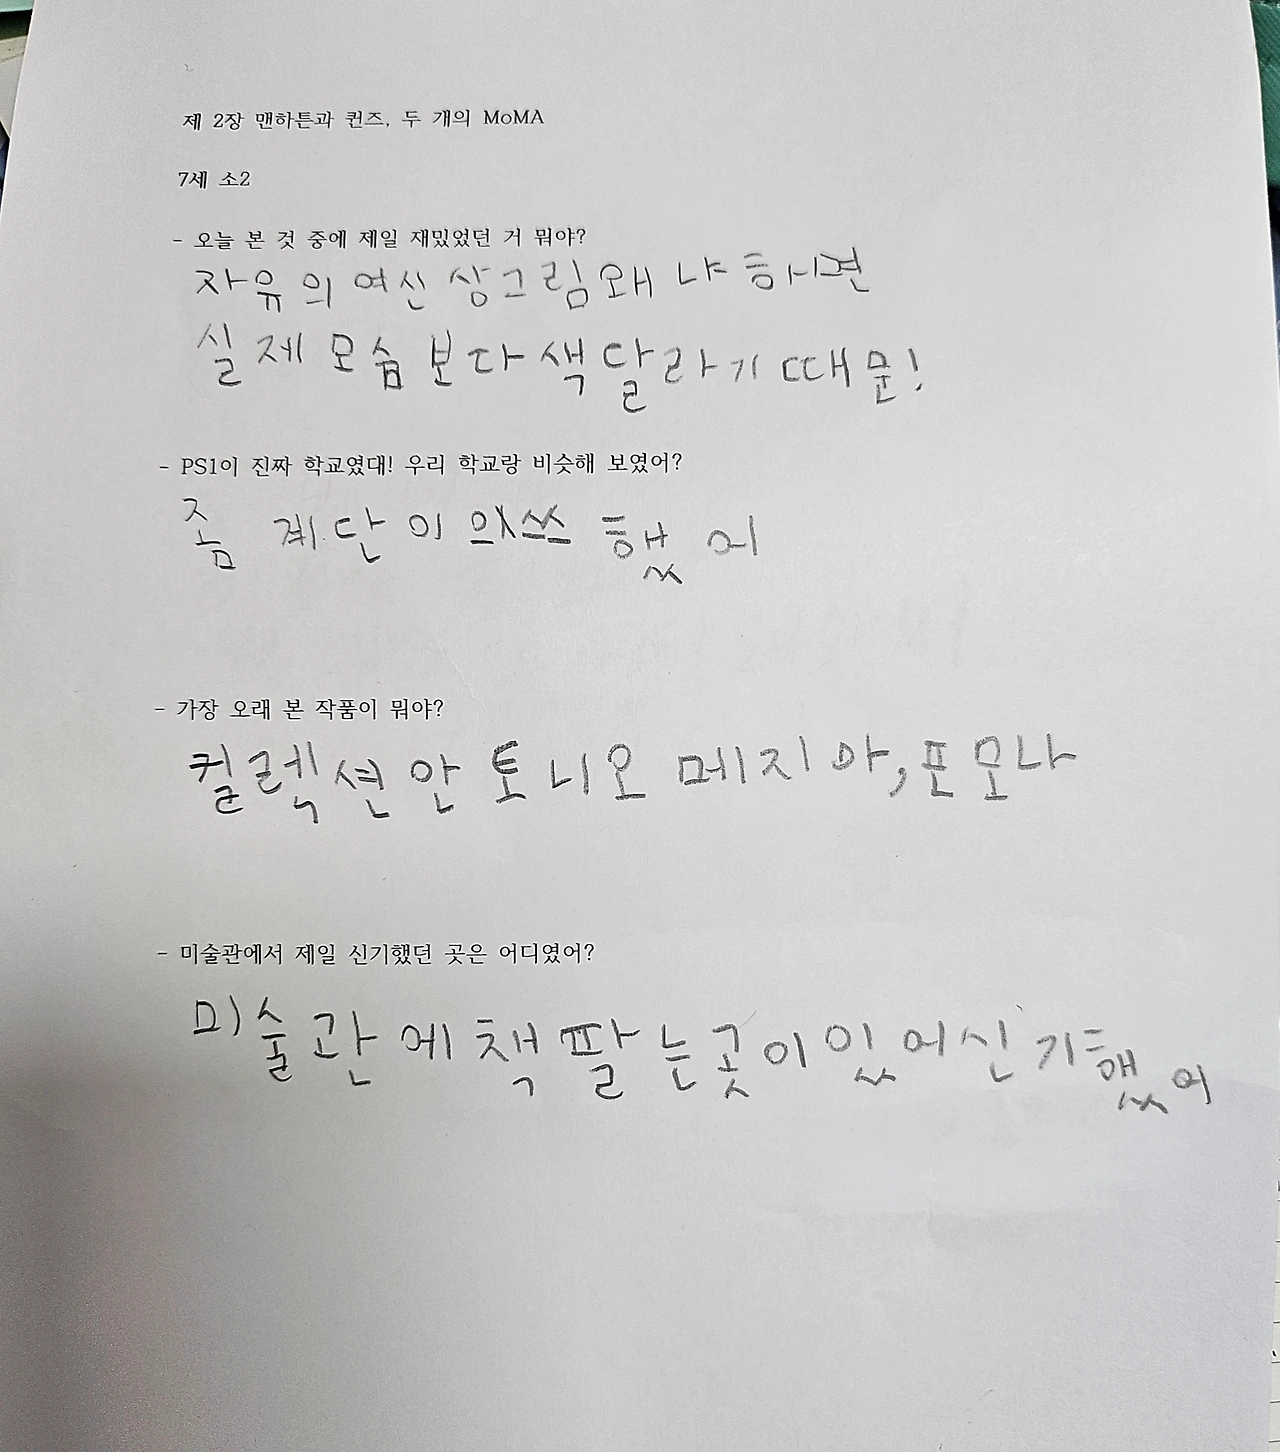 제 2장 맨하튼과 퀸즈, 두 개의 MoMA
7세 소2
- 오늘 본 것 중에 제일 재밌었던 거 뭐야?
자유의 여신상 그림 왜냐하면
실제 모습보다 색달라기 때문!
- PS1이 진짜 학교였대! 우리 학교랑 비슷해 보였어?
좀 계단이 으스쓰 했어
- 가장 오래 본 작품이 뭐야?
컬렉션 안토니오 메지아, 포모나
- 미술관에서 제일 신기했던 곳은 어디였어?
미술관에 책 팔는 곳이 있어 신기했어